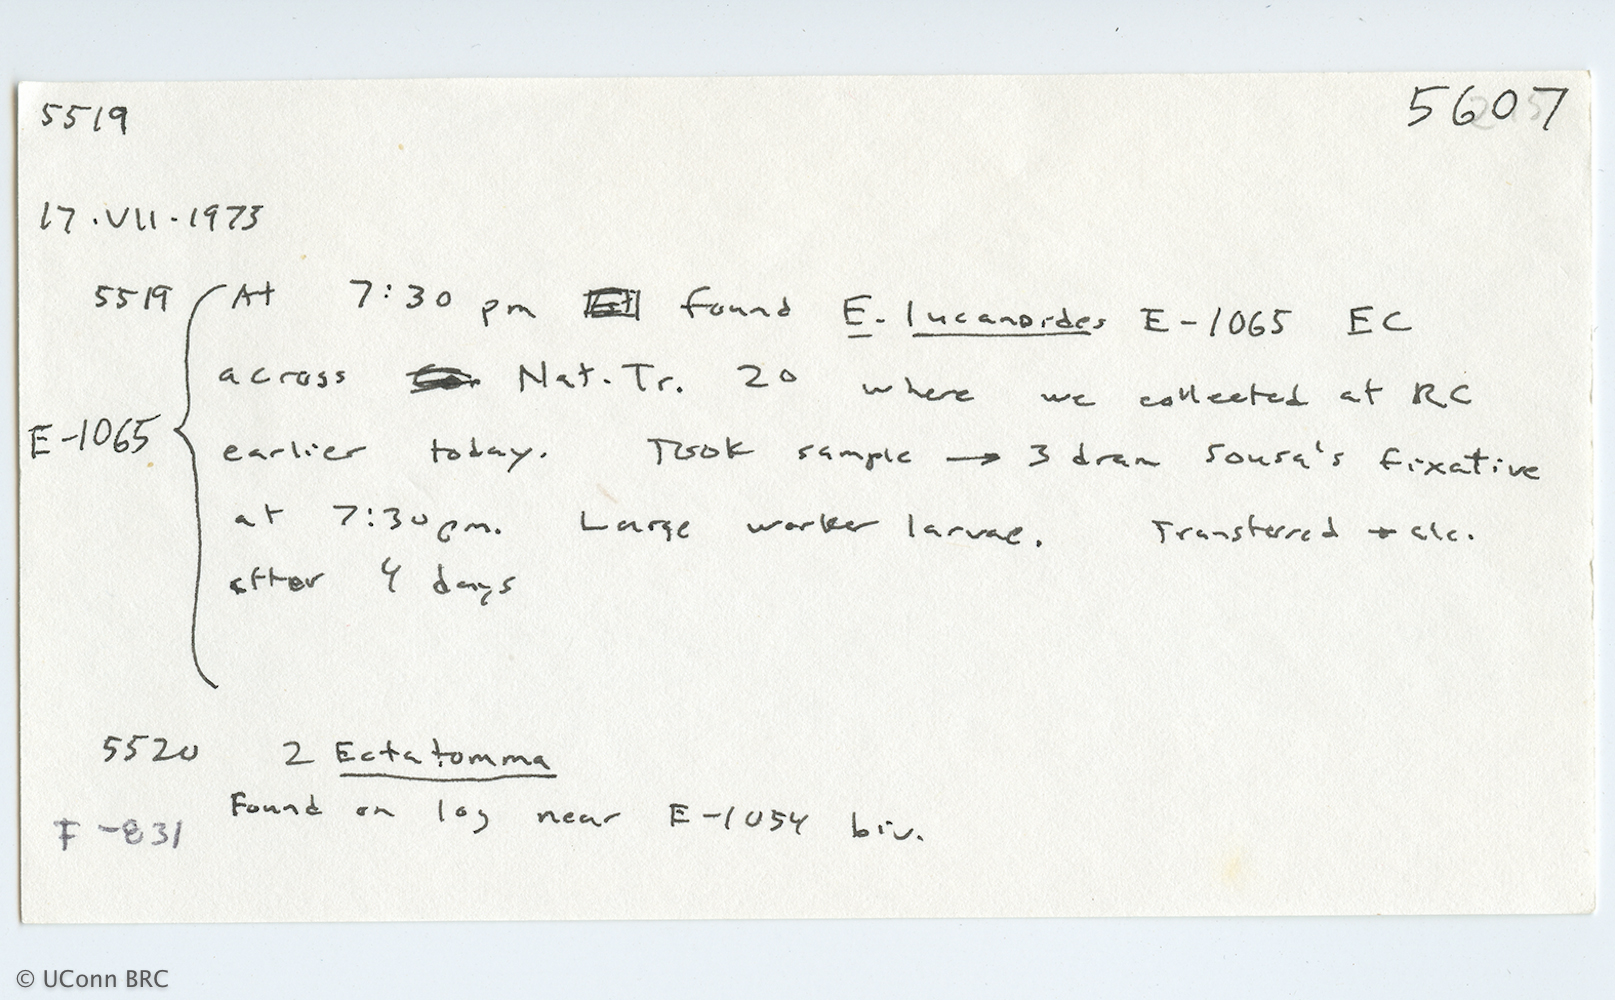 5519 5607
17.VII.1973
5519 At 7:30 pm found E. lucanoides E-1065 EC
across Nat. Tr. 20 where we collected at RC
E-1065 earlier today. Took sample → 3 dram Sousa's fixative
at 7:30 pm. Large worker larvae. Transferred → alc.
after 4 days
5520 2 Ectatomma
Found on log near E-1054 biv.
F-831
© UConn BRC